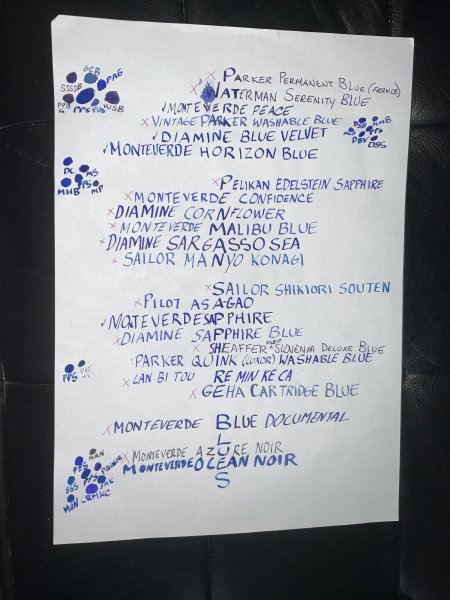 PARKER PERMANENT BLUE (FRANCE)
× WATERMAN SERENITY BLUE
✓ MONTEVERDE PEACE
× VINTAGE PARKER WASHABLE BLUE
✓ DIAMINE BLUE VELVET
✓ MONTEVERDE HORIZON BLUE
PELIKAN EDELSTEIN SAPPHIRE
× MONTEVERDE CONFIDENCE
× DIAMINE CORNFLOWER
× MONTEVERDE MALIBU BLUE
× DIAMINE SARGASSO SEA
× SAILOR MANYO KONAGI
× SAILOR SHIKIORI SOUTEN
× PILOT ASAGAO
✓ MONTEVERDE SAPPHIRE
× DIAMINE SAPPHIRE BLUE
× SHEAFFER SLOVENIA DELUXE BLUE
PARKER QUINK (LUXOR) WASHABLE BLUE
× LAN BI TOU RE MIN KE CA
× GEHA CARTRIDGE BLUE
× MONTEVERDE BLUE DOCUMENTAL
L
× MONTEVERDE AZURE NOIR
MONTEVERDE OCEAN NOIR
S
GCB
SSSDB
PAG
WSB
DSS
DC
MS
PPS
MHB
MP
PPS
MAN
PES
SSS
PPS
MON
LRMKC